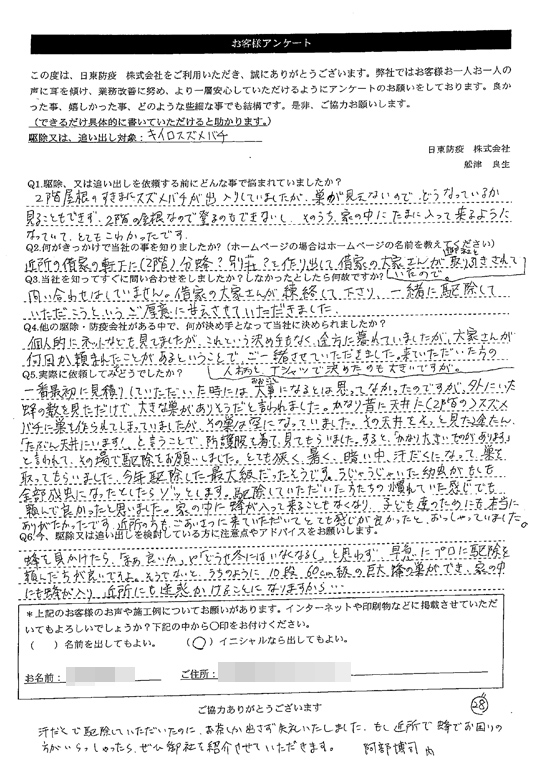 お客様アンケート
この度は、日東防疫 株式会社をご利用いただき、誠にありがとうございます。弊社ではお客様お一人お一人の
声に耳を傾け、業務改善に努め、より一層安心していただけるようにアンケートのお願いをしております。良か
った事、嬉しかった事、どのような些細な事でも結構です。是非、ご協力お願いします。
(できるだけ具体的に書いていただけると助かります。)
駆除又は、追い出し対象：キイロスズメバチ
日東防疫 株式会社
舩津 良生
Q1.駆除、又は追い出しを依頼する前にどんな事で悩まれていましたか？
2階屋根のすきまにスズメバチが出入りしていましたが、巣が見えないので、どうなっているか
見ることもできず、2階の屋根なので登るのもできないし、そのうち、家の中にたまに入って来るように
なっていて、とてもこわかったです。
Q2.何がきっかけで当社の事を知りましたか？(ホームページの場合はホームページの名前を教えてください)
近所の借家の軒下に(2階)分蜂？別荘？を作り出して借家の大家さんが御社を取引きされて
いたので。
Q3.当社を知ってすぐに問い合わせをしましたか？しなかったとしたら何故ですか？
問い合わせはしていません。借家の大家さんが連絡して下さり、一緒に駆除して
いただこうというご厚意に甘えさせていただきました。
Q4.他の駆除・防疫会社がある中で、何が決め手となって当社に決められましたか？
個人的にネットなども見てましたが、これという決め手もなく、途方に暮れていましたが、大家さんが
何回か頼まれたことがあるということで、ご一緒させていただきました。来ていただいた方の
人柄とTシャツで決めたのも大きいですが。
Q5.実際に依頼してみてどうでしたか？
一番最初に見積りしていただいた時には、大事になるとは思ってなかったのですが、外にいた
蜂の数を見ただけで、大きな巣がありそうだと言われました。かなり昔に天井に(2階の)スズメ
バチに巣を作られてしまっていましたが、その巣は空になっていました。その天井をそっと見た途たん、
「たぶん天井にいます！」と言うことで、防護服を着て、見てもらいました。すると、「かなり大きいものがあります」
と言われて、その場で駆除をお願いしました。とても狭く、暑く、暗い中、汗だくになって、巣を
取ってもらいました。今年駆除した最大級だったそうです。うじゃうじゃいた幼虫がもしも
全部成虫になったとしたらゾッとします。駆除していただいた方たちの慣れていた感じでも
頼んで良かったと思いました。家の中に蜂が入って来ることもなくなり、子ども達のためにも本当に
ありがたかったです。近所の方もごあいさつに来ていただいてとても感じが良かったと、おっしゃっていました。
Q6.今、駆除又は追い出しを検討している方に注意点やアドバイスをお願いします。
蜂を見かけたら、「まあ良いか」や「どうせ冬にはいなくなるし」と思わず、早急にプロに駆除を
頼んだ方が良いですよ。そうでないと、うちのように10段60cm級の巨大蜂の巣ができ、家の中
にも蜂が入り、近所にも迷惑かけることになりますから…
＊上記のお客様のお声や施工例についてお願いがあります。インターネットや印刷物などに掲載させていただ
いてもよろしいでしょうか？下記の中から〇印をお付けください。
( )名前を出してもよい。 (〇)イニシャルなら出してもよい。
お名前： ご住所：
ご協力ありがとうございます
28
汗だくで駆除していただいたのに、お茶しか出さず失礼いたしました。もし近所で蜂でお困りの
方がいらっしゃったら、ぜひ御社を紹介させていただきます。 阿部博司 内